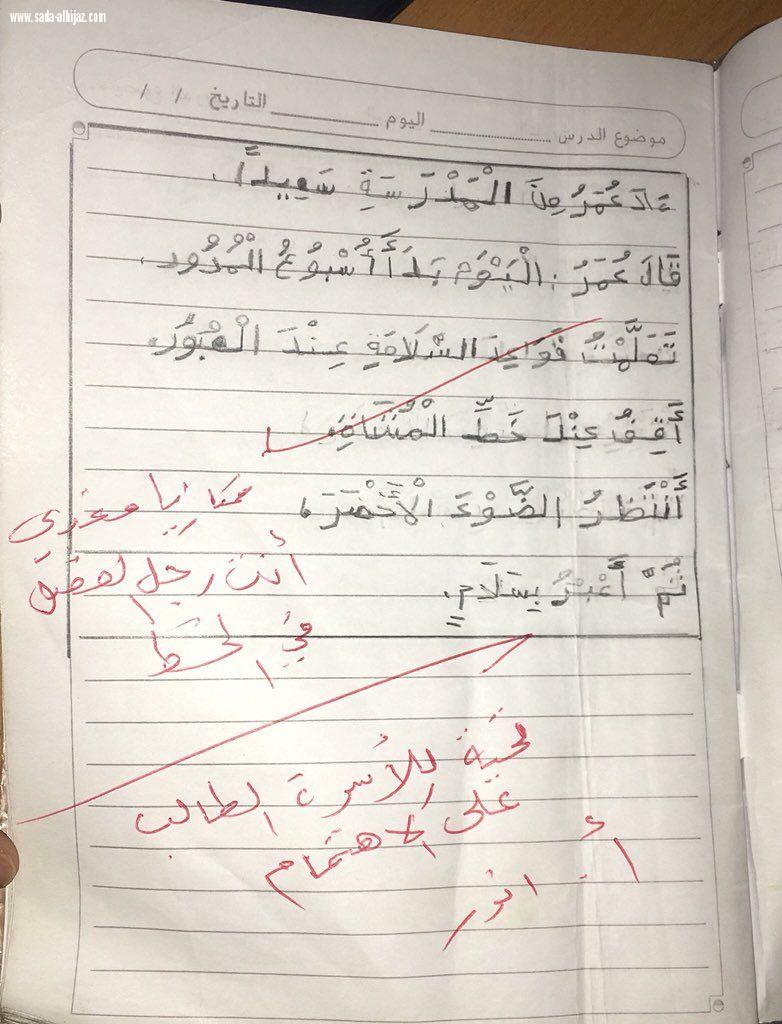 www.sada-alhijaz.com
موضوع الدرس ............ اليوم ............ التاريخ / /
عَادَ عُمَرُ مِنَ الْمَدْرَسَةِ سَعِيدًا.
قَالَ عُمَرُ : الْيَوْمَ بَدَأَ أُسْبُوعُ الْمُرُورِ.
تَعَلَّمْتُ قَوَاعِدَ السَّلَامَةِ عِنْدَ الْعُبُورِ.
أَقِفُ عِنْدَ خَطِّ الْمُشَاةِ.
أَنْتَظِرُ الضَّوْءَ الْأَخْضَرَ،
ثُمَّ أَعْبُرُ بِسَلَامٍ.
يا
أنت رجل
في الخط
تحية للأسرة الطالب
على الاهتمام
أ. أنور